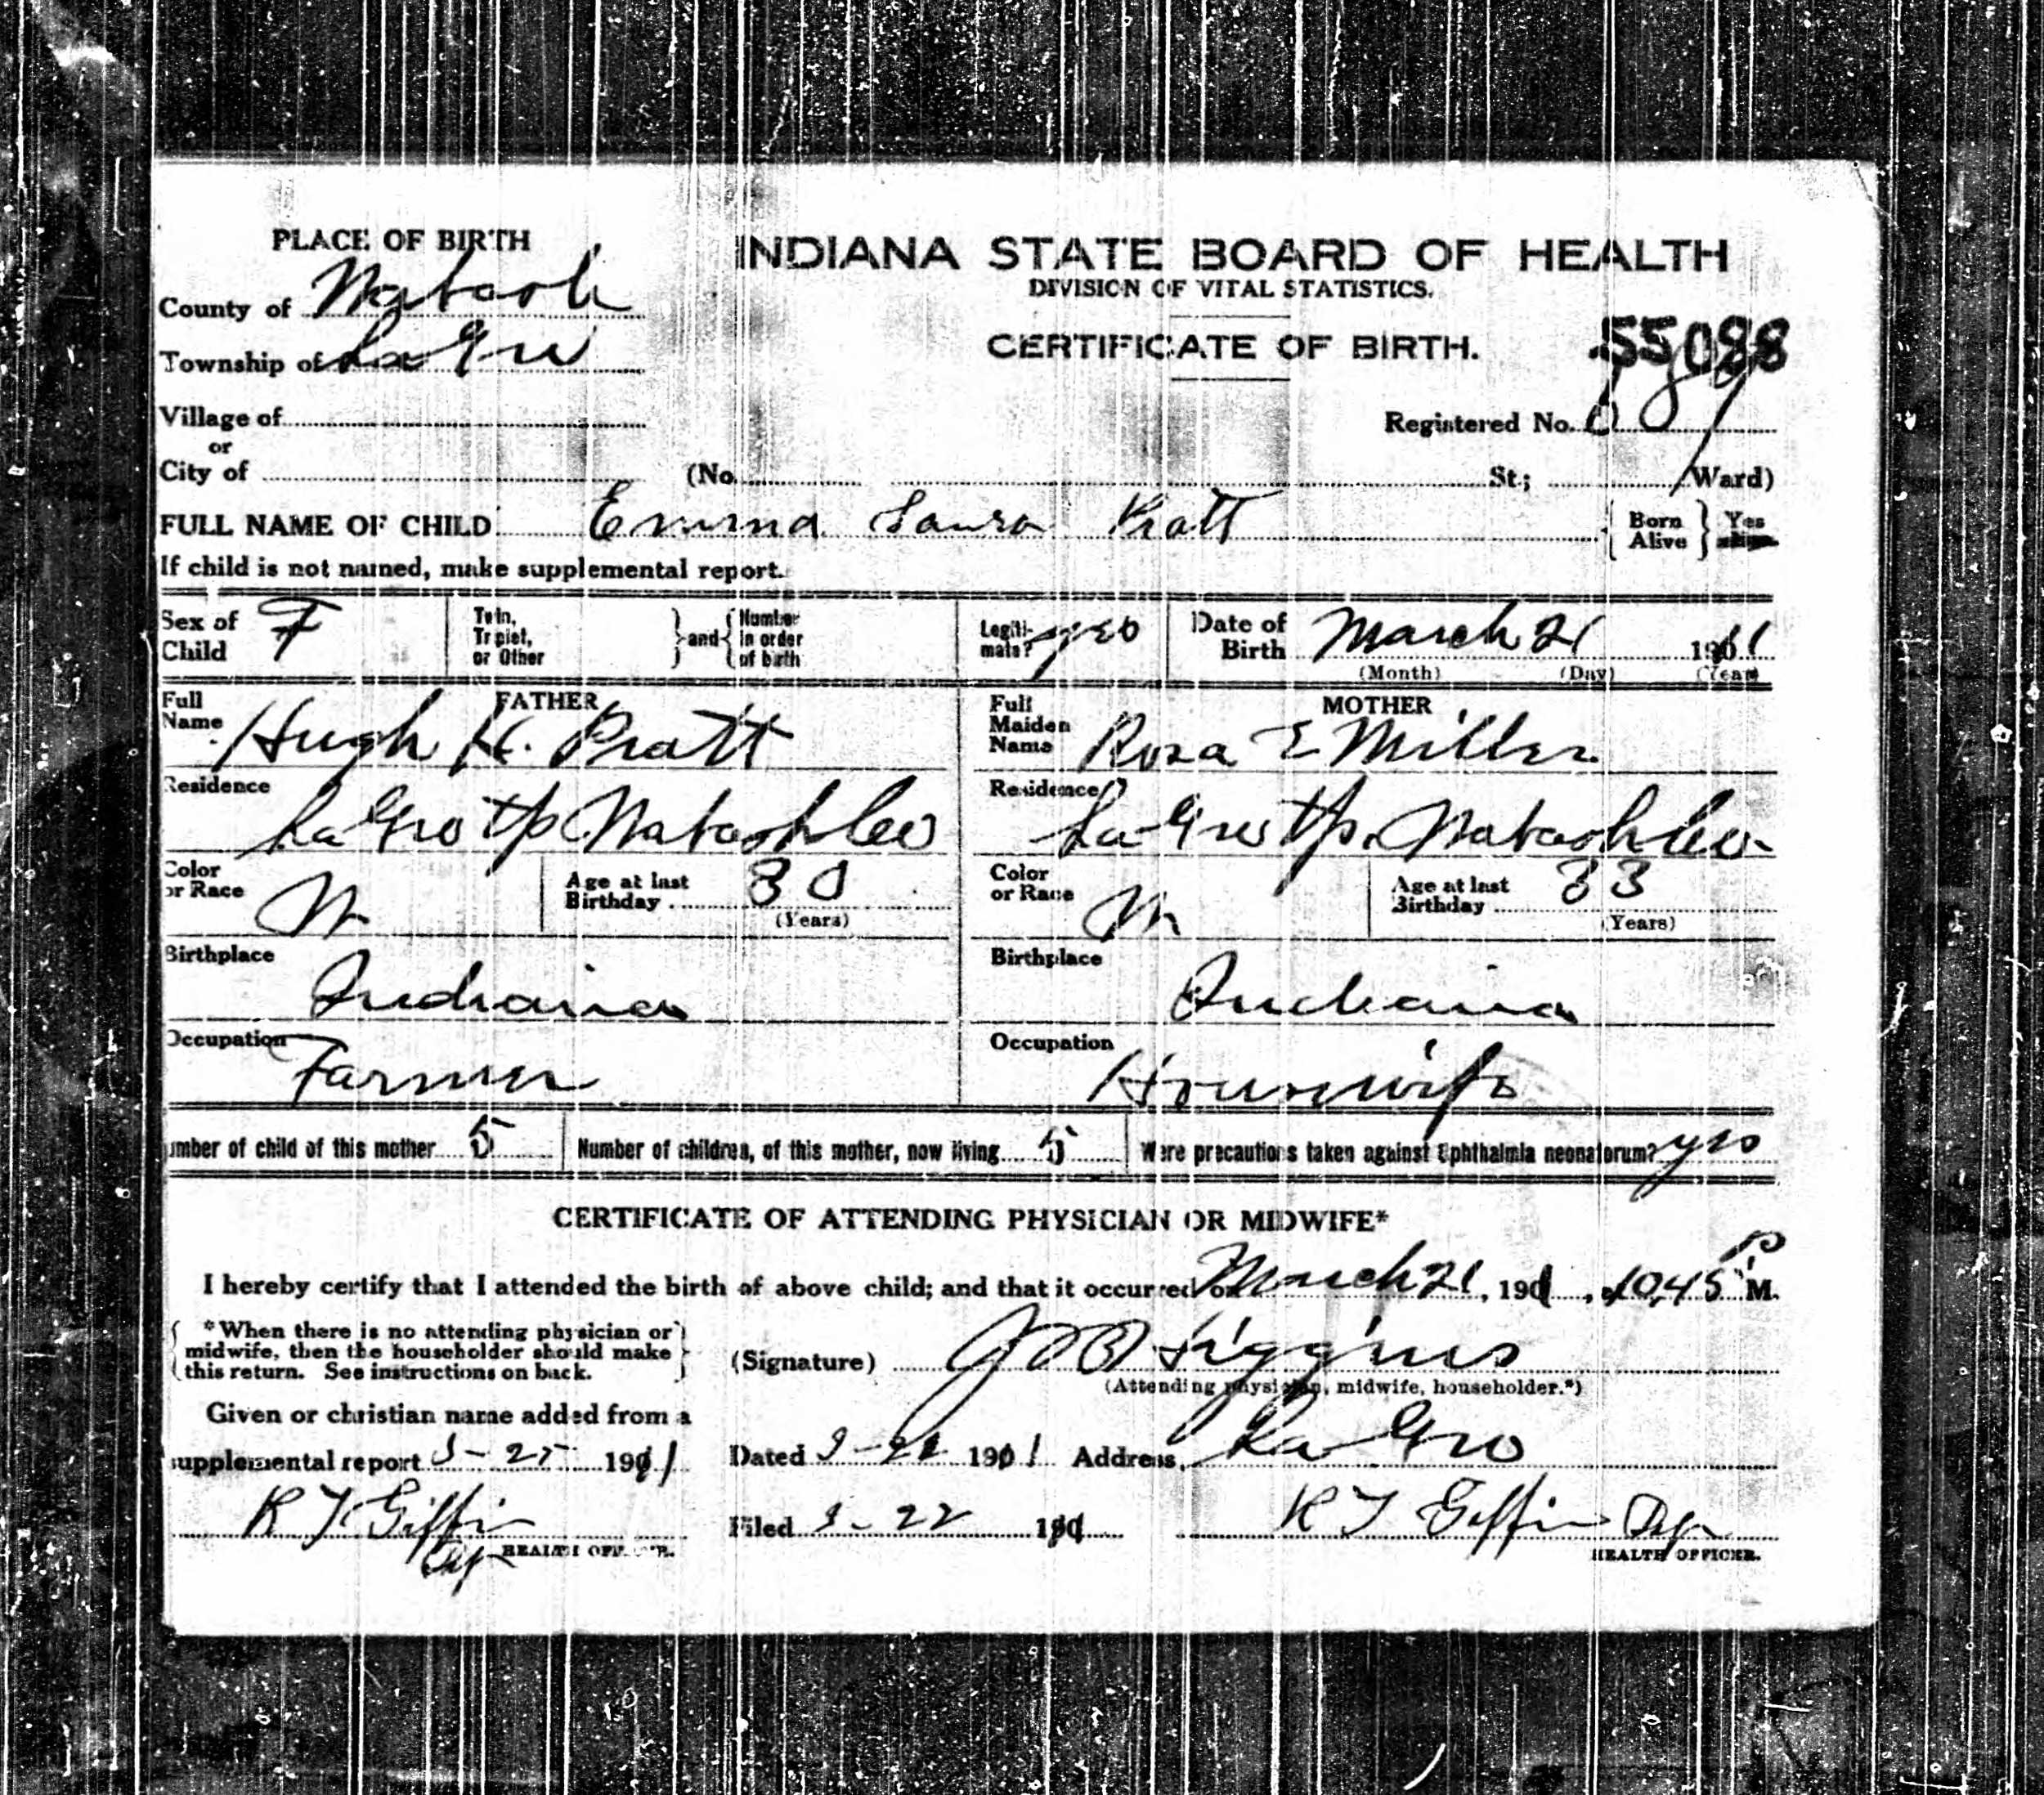 PLACE OF BIRTH
INDIANA STATE BOARD OF HEALTH
DIVISION OF VITAL STATISTICS.
County of Wabash
CERTIFICATE OF BIRTH.
55088
Township of La Gro
Village of
Registered No.
or
City of (No. St.; Ward)
FULL NAME OF CHILD Emma Laura Pratt { Born Alive } Yes
If child is not named, make supplemental report.
Sex of Child F
Twin, Triplet, or Other } and { Number in order of birth
Legitimate? yes
Date of Birth March 21 1911
(Month) (Day) (Year)
FATHER
Full Name Hugh H. Pratt
MOTHER
Full Maiden Name Rosa E Miller
Residence La Gro tp. Wabash Co
Residence La-Gro tp. Wabash Co.
Color or Race W
Age at last Birthday 30
(Years)
Color or Race W
Age at last Birthday 33
(Years)
Birthplace Indiana
Birthplace Indiana
Occupation Farmer
Occupation Housewife
umber of child of this mother 5
Number of children, of this mother, now living 5
Were precautions taken against Ophthalmia neonatorum? yes
CERTIFICATE OF ATTENDING PHYSICIAN OR MIDWIFE*
I hereby certify that I attended the birth of above child; and that it occurred on March 21, 1911, at 10,45 P M.
{ *When there is no attending physician or
midwife, then the householder should make
this return. See instructions on back. }
(Signature) Higgins
(Attending physician, midwife, householder.*)
Given or christian name added from a
supplemental report 3-25 1911
Dated 3-22 1911 Address, La Gro
R T Giffin
Dep
HEALTH OFFICER.
Filed 3-22 1911
R T Giffin Dep
HEALTH OFFICER.